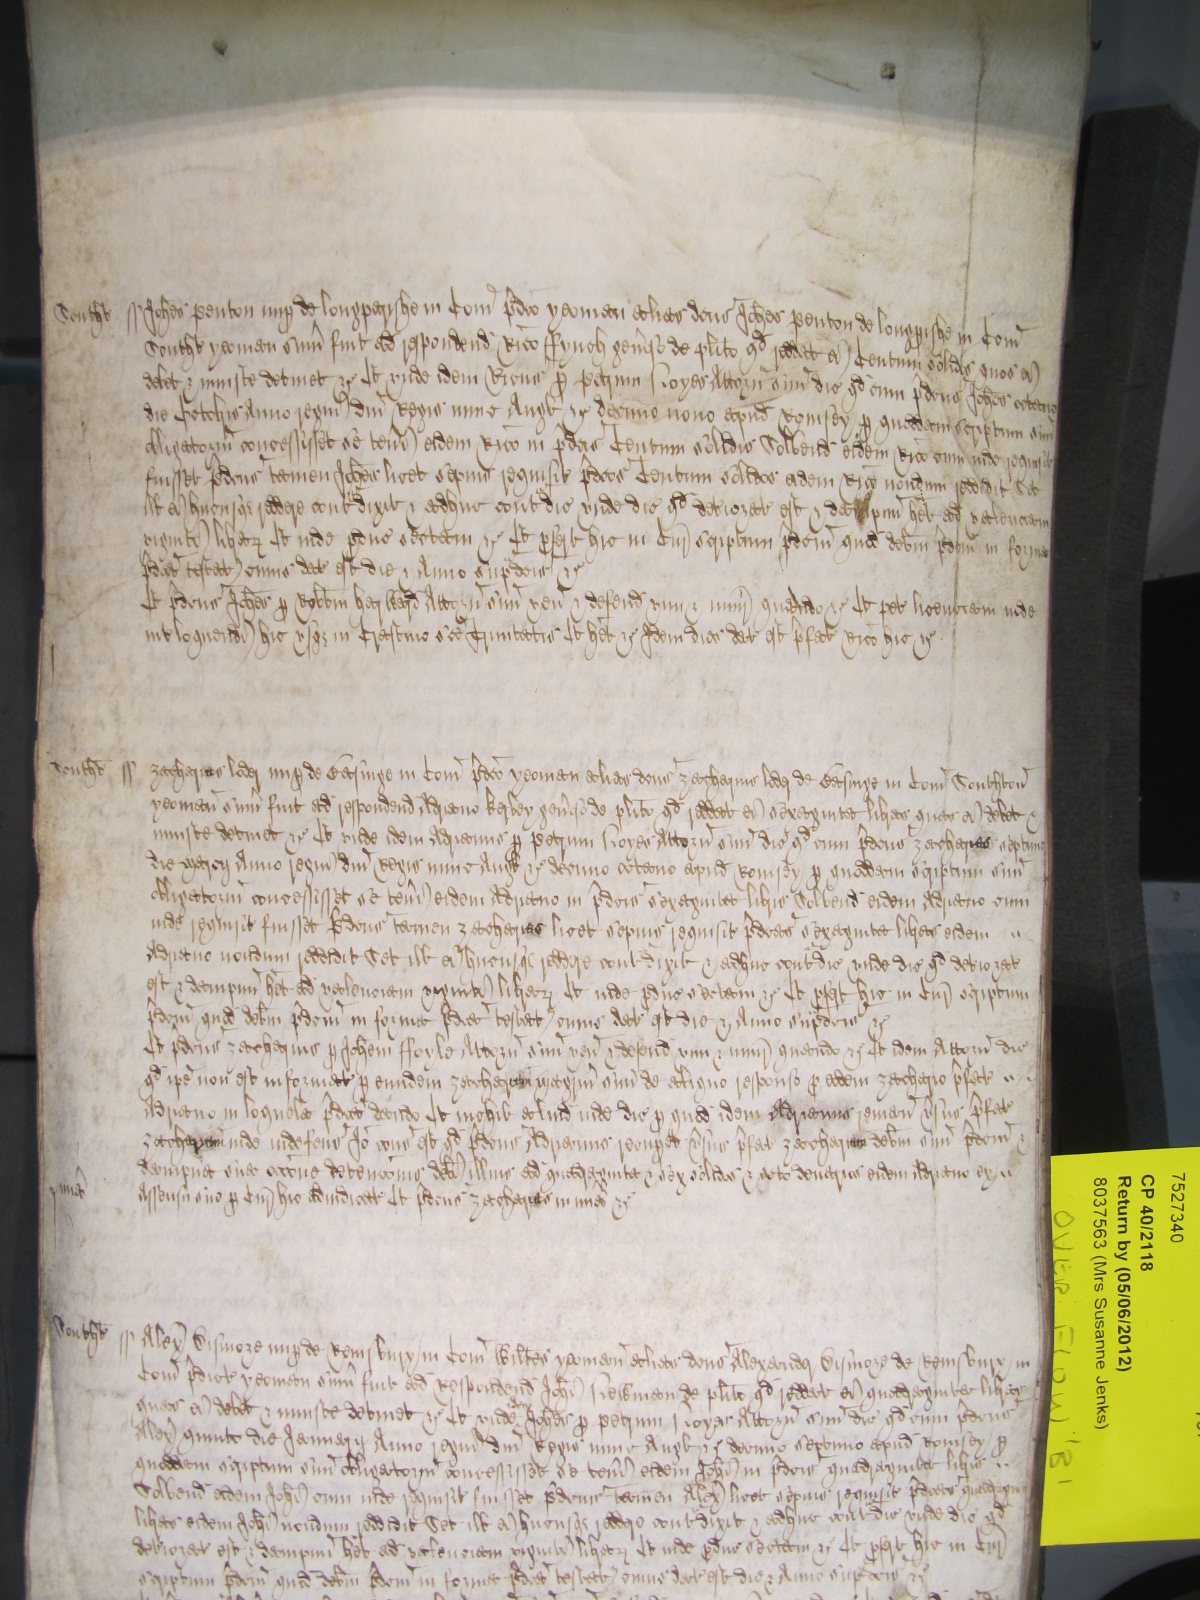 Southt ss Johes Penton nup de longparishe in Com pdco yeoman alias dcus Johes Penton de longpishe in Com
Southt yeoman sum fuit ad respondend Rico Ffynch genoso de plito qd reddat ei Centum solidos quos ei
debet & iniuste detinet &c Et unde idem Ricus p Petrum Noyes Attorn suu dic qd cum pdcus Johes octavo
die Octobris Anno regni dni Regis nunc Angl &c decimo nono apud Romsey p quoddam scriptum suu
obligatoriu concessisset se teneri eidem Rico in pdcis Centum solidis Solvend eidem Rico cum inde requisit
fuisset pdcus tamen Johes licet sepius requisit pdcos Centum solidos eidem Rico nondum reddidit Set
ill ei hucusq reddere contradixit & adhuc contradic unde dic qd deteriorat est & dampnu het ad valenciam
viginti librar Et inde pduc sectam &c Et pfert hic in Cur scriptum pdcm quod debm pdcm in forma
pdca testat cuius dat est die & Anno supdcis &c
Et pdcus Johes p Robtm Attorn suu ven & defend vim & iniur quando &c Et pet licenciam inde
int loquendi hic usq in Crastino sce Trinitatis Et het &c Idem dies dat est pfat Rico hic &c
Southt ss Zacharias nup de in Com pdco yeoman alias dcus Zacharias de in Com Southton
yeoman sum fuit ad respondend Adriano genoso de plito qd reddat ei sexaginta libras quas ei debet &
iniuste detinet &c Et unde idem Adrianus p Petrum Noyes Attorn suu dic qd cum pdcus Zacharias septimo
die Anno regni dni Regis nunc Angl &c decimo octavo apud Romsey p quoddam scriptum suu
obligatoriu concessisset se teneri eidem Adriano in pdcis sexaginta libris Solvend eidem Adriano cum
inde requisit fuisset pdcus tamen Zacharias licet sepius requisit pdcas sexaginta libras eidem
Adriano nondum reddidit Set ill ei hucusq reddere contradixit & adhuc contradic unde dic qd deteriorat
est & dampnu het ad valenciam viginti librar Et inde pduc sectam &c Et pfert hic in Cur scriptum
pdcm quod debm pdcm in forma pdca testat cuius dat est die & Anno supdcis &c
Et pdcus Zacharias p Johem Ffoyle Attorn suu ven & defend vim & iniur quando &c Et idem Attorn dic
qd ipe non est informat p eundem Zachariam magrm suu de aliquo responso p eodem Zacharia pfat
Adriano in loquela pdca dando Et nichil aliud inde dic p quod idem Adrianus remanet vsus pfat
Zachariam inde indefens Io cons est qd pdcus Adrianus recuperet vsus pfat Zachariam debm suu pdcm &
dampna sua occone detencionis debi illius ad quadraginta & sex solidos & octo denarios eidem Adriano ex
Assensu suo p Cur hic adiudicat Et pdcus Zacharias in mia &c
Southt ss Alex nup de Remsbury in Com Wiltes yeoman alias dcus Alexander de Remsbury in
Com pdict yeoman sum fuit ad Respondend Johi Newman de plito qd reddat ei quadraginta libras
quas ei debet & iniuste detinet &c Et unde idem Johes p Petrum Noyes Attorn suu dic qd cum pdcus
Alex quinto die Januarij Anno regni dni Regis nunc Angl &c decimo septimo apud Romsey p
quoddam scriptum suu obligatoriu concessisset se teneri eidem Johi in pdcis quadraginta libris
Solvend eidem Johi cum inde requisit fuisset pdcus tamen Alex licet sepius requisit pdcas quadraginta
libras eidem Johi nondum reddidit Set ill ei hucusq reddere contradixit & adhuc contradic unde dic qd
deteriorat est & dampnu het ad valenciam viginti librar Et inde pduc sectam &c Et pfert hic in Cur
scriptum pdcm quod debm pdcm in forma pdca testat cuius dat est die & Anno supdcis &c
7527340
CP 40/2118
Return by (05/06/2012)
8037563 (Mrs Susanne Jenks)
OVER FLOW 1B1